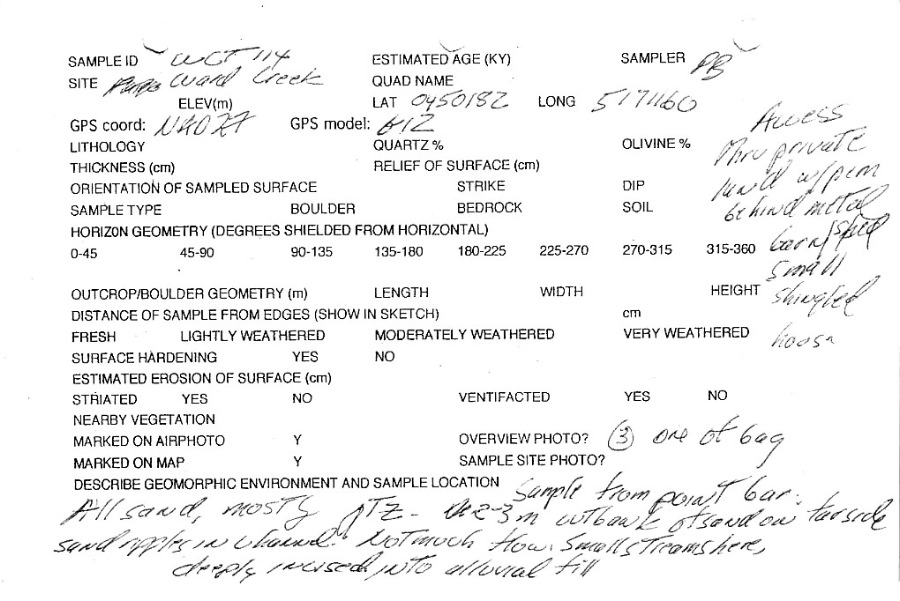 SAMPLE ID WCT 114 ESTIMATED AGE (KY) SAMPLER PB
SITE Ward Creek QUAD NAME
ELEV(m) LAT 0450182 LONG 5171160
GPS coord: NAD27 GPS model: G12
LITHOLOGY QUARTZ % OLIVINE %
THICKNESS (cm) RELIEF OF SURFACE (cm)
ORIENTATION OF SAMPLED SURFACE STRIKE DIP
SAMPLE TYPE BOULDER BEDROCK SOIL
HORIZON GEOMETRY (DEGREES SHIELDED FROM HORIZONTAL)
0-45 45-90 90-135 135-180 180-225 225-270 270-315 315-360
Access
thru private
land w/perm
behind metal
barn/shed
small
shingled
house
OUTCROP/BOULDER GEOMETRY (m) LENGTH WIDTH HEIGHT
DISTANCE OF SAMPLE FROM EDGES (SHOW IN SKETCH) cm
FRESH LIGHTLY WEATHERED MODERATELY WEATHERED VERY WEATHERED
SURFACE HARDENING YES NO
ESTIMATED EROSION OF SURFACE (cm)
STRIATED YES NO VENTIFACTED YES NO
NEARBY VEGETATION
MARKED ON AIRPHOTO Y OVERVIEW PHOTO? (3) one of bag
MARKED ON MAP Y SAMPLE SITE PHOTO?
DESCRIBE GEOMORPHIC ENVIRONMENT AND SAMPLE LOCATION Sample from point bar.
All sand, mostly qTZ - 2-3m cutbank of sand on far side
sand ripples in channel. Not much flow. Small streams here,
deeply incised into alluvial fill